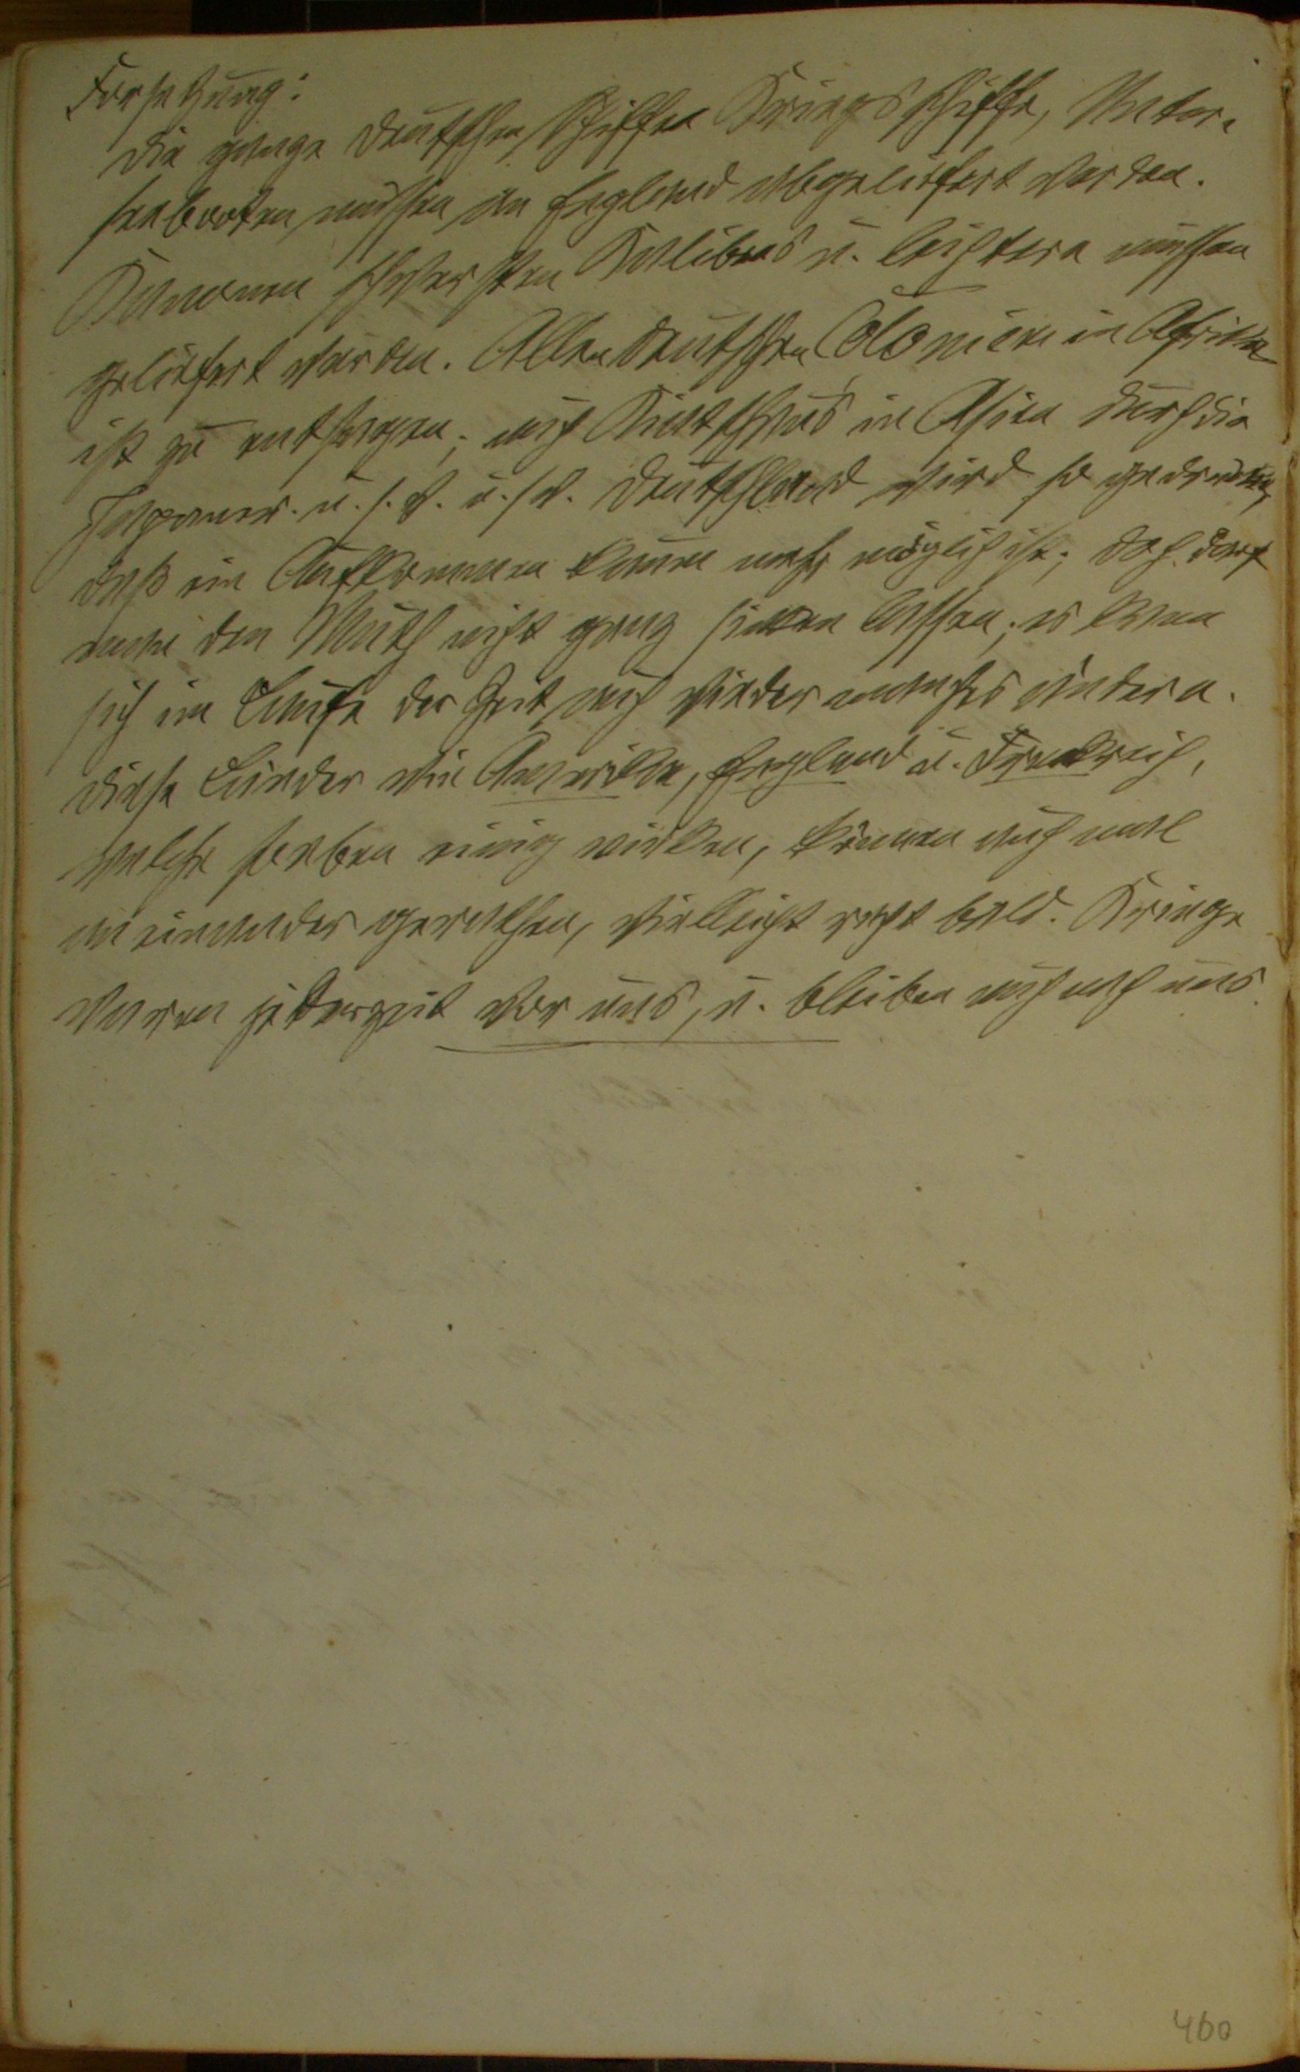 Forsetzung:
Die ganze deutschen Schiffen Kriegsschiffe, Unter-
seebooten, müssen an England abgeliefert werden.
Kanonen schwersten Kalibers u. leichtere müssen
geliefert werden. Allen deutschen Colonien in Afrika
ist zu entsagen; auch Kiautschau in Asien durch die
Japaner. u. s. w. u. s. w. Deutschland wird so gedrückt,
daß ein Aufkommen kaum mehr möglich ist; doch darf
man den Muth nicht ganz sinken lassen; es kann
sich im Laufe der Zeit auch wieder manches ändern.
Diese Länder wie Amerika, England u. Frankreich,
welche soeben einig wirken, können auch mal
an einander gerathen, vielleicht recht bald. Kriege
waren jederzeit vor uns, u. bleiben auch nach uns.
460